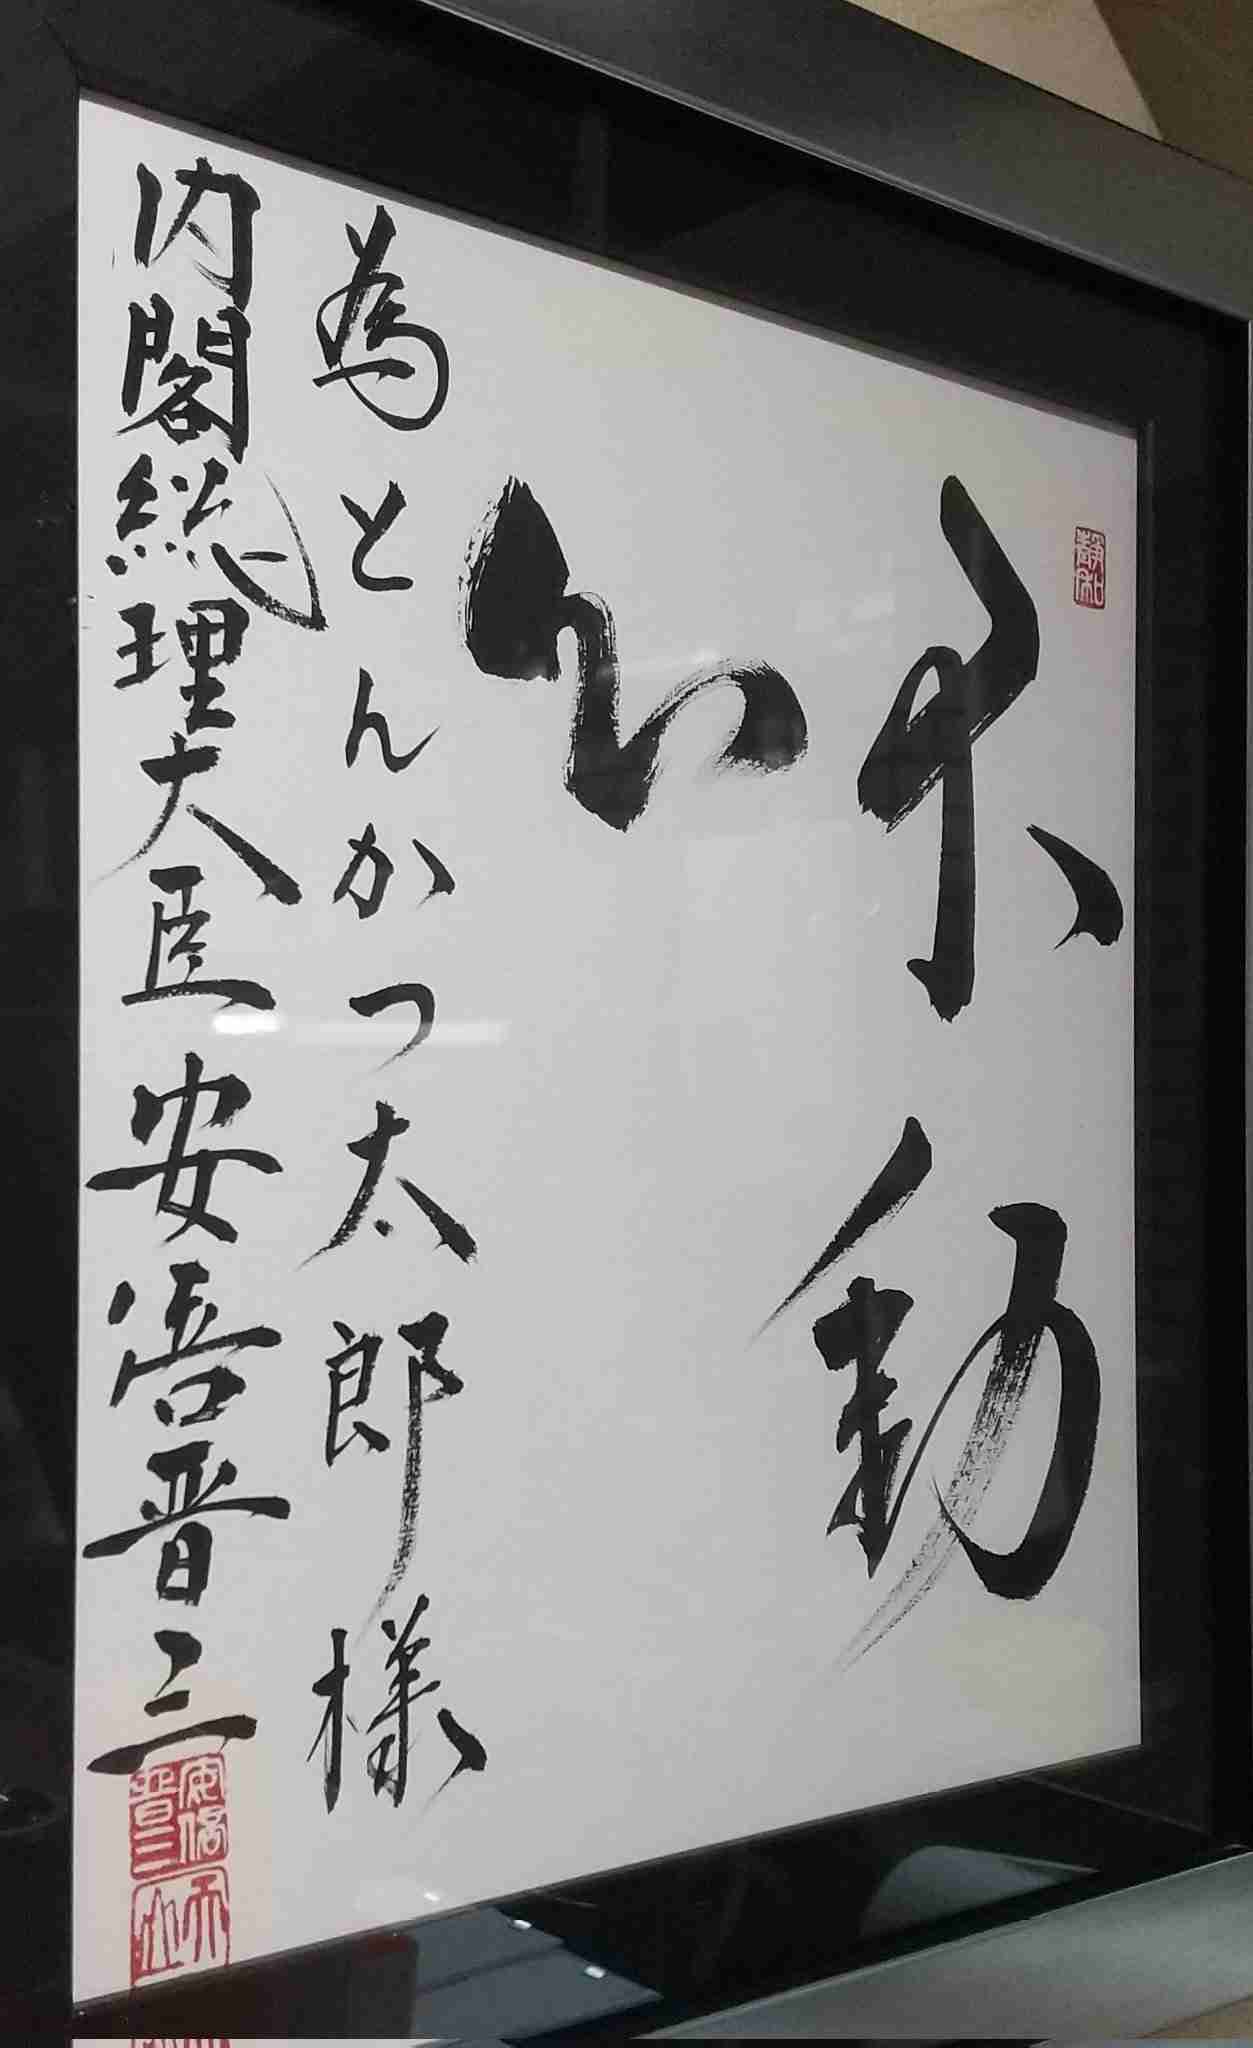 不動
心
為とんかつ太郎様
内閣総理大臣 安倍晋三
安倍
晋三